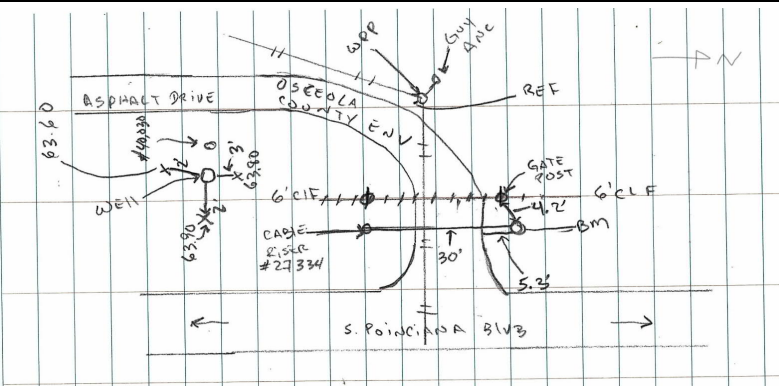 WPP
GUY
ANC
N
REF
ASPHALT DRIVE
OSCEOLA
COUNTY ENV
63.60
2'
3'
63.80
WELL
2'
63.90
6' CLF
GATE
POST
6' CLF
4.2'
BM
CABLE
RISER
#27334
30'
5.3'
S. POINCIANA BLVD